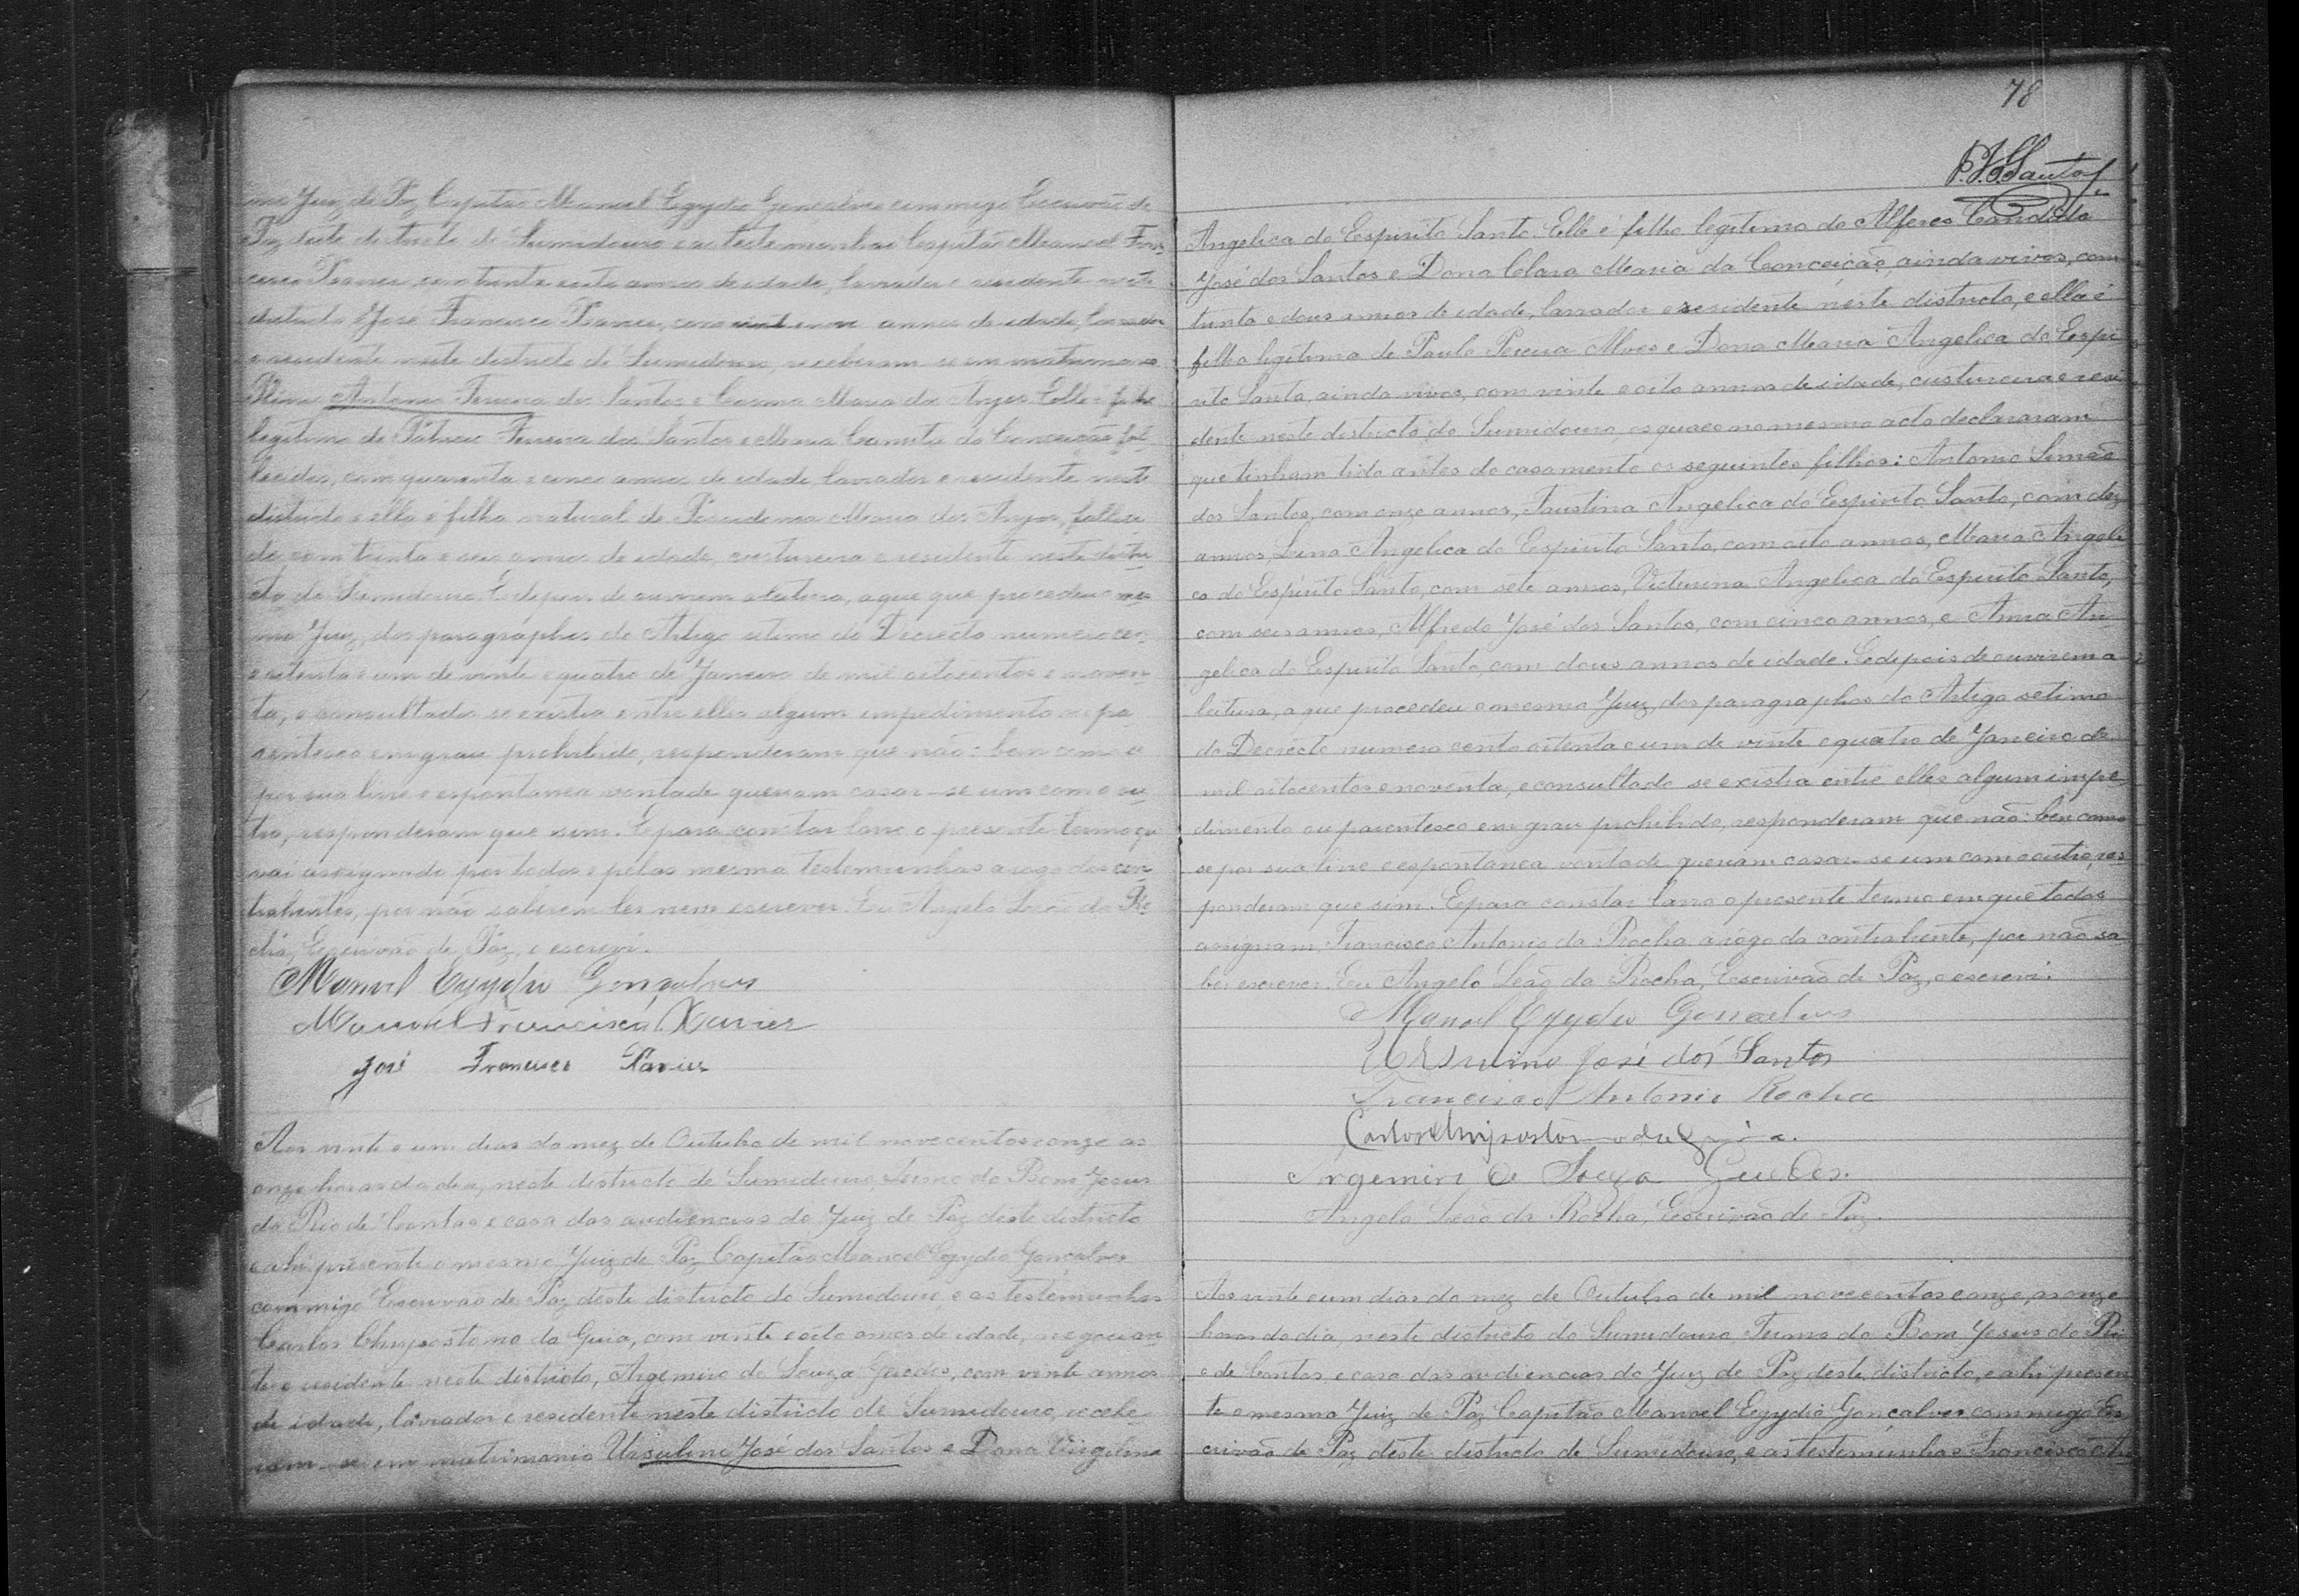 mo Juiz de Paz Capitão Manoel Egydio Gonçalves commigo Escrivão de
Paz deste districto de Sumidouro e as testemunhas Capitão Manoel Fran-
cisco Xavier, com trinta e oito annos de idade, lavrador e residente neste
districto e José Francisco Xavier, com annos de idade, lavrador
e residente neste districto de Sumidouro, receberam-se em matrimonio
Antonio Ferreira dos Santos e Cosma Maria dos Anjos. Elle é filho
legitimo de Patricio Ferreira dos Santos e Maria da Conceição, fal-
lecidos, com quarenta e cinco annos de idade, lavrador e residente neste
districto e ella é filha natural de Maria dos Anjos, falleci-
da com trinta e seis annos de idade, custureira e residente neste distri-
cto do Sumidouro. E depois de ouvirem a leitura, a que que procedeu o mes-
mo Juiz, dos paragraphos do Artigo setimo do Decreto numero cen-
e oitenta e um de vinte e quatro de Janeiro de mil oitocentos e noven-
ta, e consultados se existia entre elles algum impedimento ou pa-
rentesco em grau prohibido, responderam que não: bem como se
por sua livre e espontanea vontade queriam casar-se um com o ou-
tro, responderam que sim. E para constar lavro o presente termo que
vai assignado por todos e pelas mesma testemunhas a rogo dos con-
trahentes, por não saberem ler nem escrever. Eu Angelo Leão da Ro-
cha, Escrivão de Paz, o escrevi.
Manoel Egydio Gonçalves
Manoel Francisco Xavier
José Francisco Xavier
Aos vinte e um dias do mez de Outubro de mil novecentos e onze as
onze horas do dia, neste districto de Sumidouro, Termo do Bom Jesus
do Rio de Contas e casa das audiencias do Juiz de Paz deste districto
e ahi presente o mesmo Juiz de Paz Capitão Manoel Egydio Gonçalves
commigo Escrivão de Paz deste districto do Sumidouro, e as testemunhas
Carlos Chrysostomo da Guia, com vinte e oito annos de idade, negocian-
te e residente neste districto, Argemiro de Souza Guedes, com vinte annos
de idade, lavrador e residente neste districto de Sumidouro, recebe-
ram-se em matrimonio Ursulino José dos Santos e Dona Virgilina
78
P.J.S.Santos
Angelica do Espirito Santo. Elle é filho legitimo do Alferes Candido
José dos Santos e Dona Clara Maria da Conceição, ainda vivos, com
trinta e dous annos de idade, lavrador e residente neste districto, e ella é
filha legitima de Paulo Pereira Alves e Dona Maria Angelica do Espi-
rito Santo, ainda vivos, com vinte e oito annos de idade, custureira e resi-
dente neste districto do Sumidouro, os quaes no mesmo acto declararam
que tinham tido antes do casamento os seguintes filhos: Antonio Simão
dos Santos, com onze annos, Faustina Angelica do Espirito Santo, com dez
annos, Lina Angelica do Espirito Santo, com oito annos, Maria Angeli-
ca do Espirito Santo, com sete annos, Victurina Angelica do Espirito Santo,
com seis annos, Alfredo José dos Santos, com cinco annos, e Anna An-
gelica do Espirito Santo, com dous annos de idade. E depois de ouvirem a
leitura, a que procedeu o mesmo Juiz, dos paragraphos do Artigo setimo
do Decreto numero cento oitenta e um de vinte e quatro de Janeiro de
mil oitocentos e noventa, e consultado se existia entre elles algum impe-
dimento ou parentesco em grau prohibido, responderam que não: bem como
se por sua livre e espontanea vontade queriam casar-se um com o outro, res-
ponderam que sim. E para constar lavro o presente termo em que todos
assignam, Francisco Antonio da Rocha a rogo da contrahente, por não sa-
ber escrever. Eu Angelo Leão da Rocha, Escrivão de Paz, o escrevi.
Manoel Egydio Gonçalves
Ursulino José dos Santos
Francisco Antonio Rocha
Carlos Chrysostomo da Guia.
Argemiro de Souza Guedes.
Angelo Leão da Rocha, Escrivão de Paz.
Aos vinte e um dias do mez de Outubro de mil novecentos e onze, as onze
horas do dia, neste districto do Sumidouro Termo do Bom Jesus do Ri-
o de Contas e casa das audiencias do Juiz de Paz deste districto, e ahi presen-
te o mesmo Juiz de Paz Capitão Manoel Egydio Gonçalves commigo Es-
crivão de Paz deste districto de Sumidouro, e as testemunhas Francisco An-